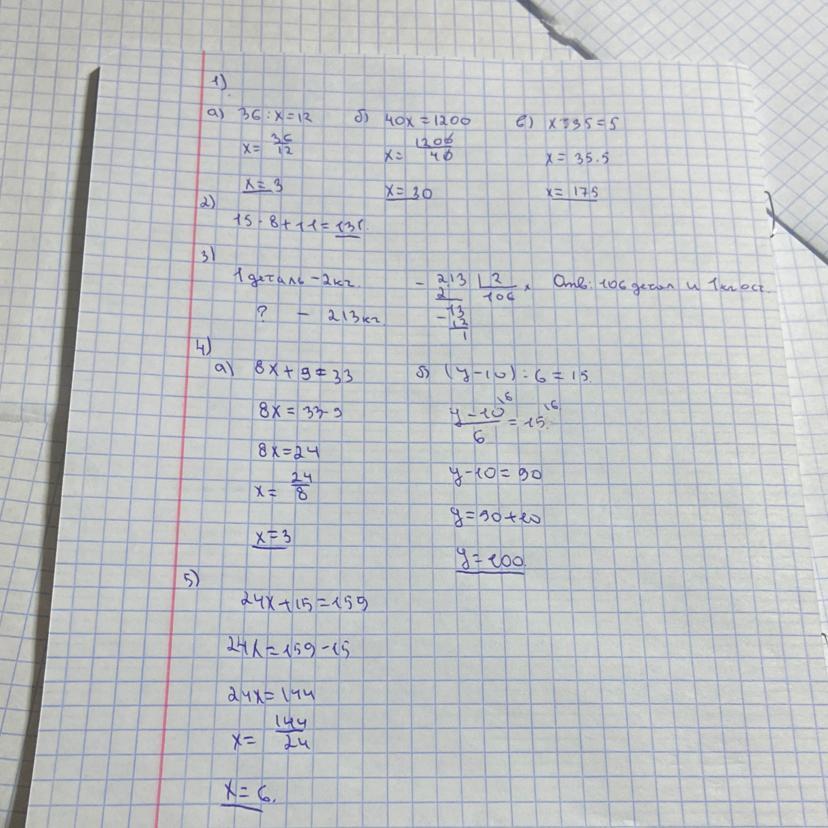 1)
а) 36 : x = 12
x = 36/12
x = 3
б) 40x = 1200
x = 1200/40
x = 30
в) x : 35 = 5
x = 35 · 5
x = 175
2)
15 · 8 + 11 = 131.
3)
1 деталь – 2кг.
? – 213кг
213 | 2
2 106
13
12
1
Отв: 106 детал и 1кг ост.
4)
а) 8x + 9 = 33
8x = 33 - 9
8x = 24
x = 24/8
x = 3
б) (y – 10) : 6 = 15
y – 10 \6 / 6 = 15 \6
y – 10 = 90
y = 90 + 10
y = 100
5)
24x + 15 = 159
24x = 159 – 15
24x = 144
x = 144/24
x = 6.